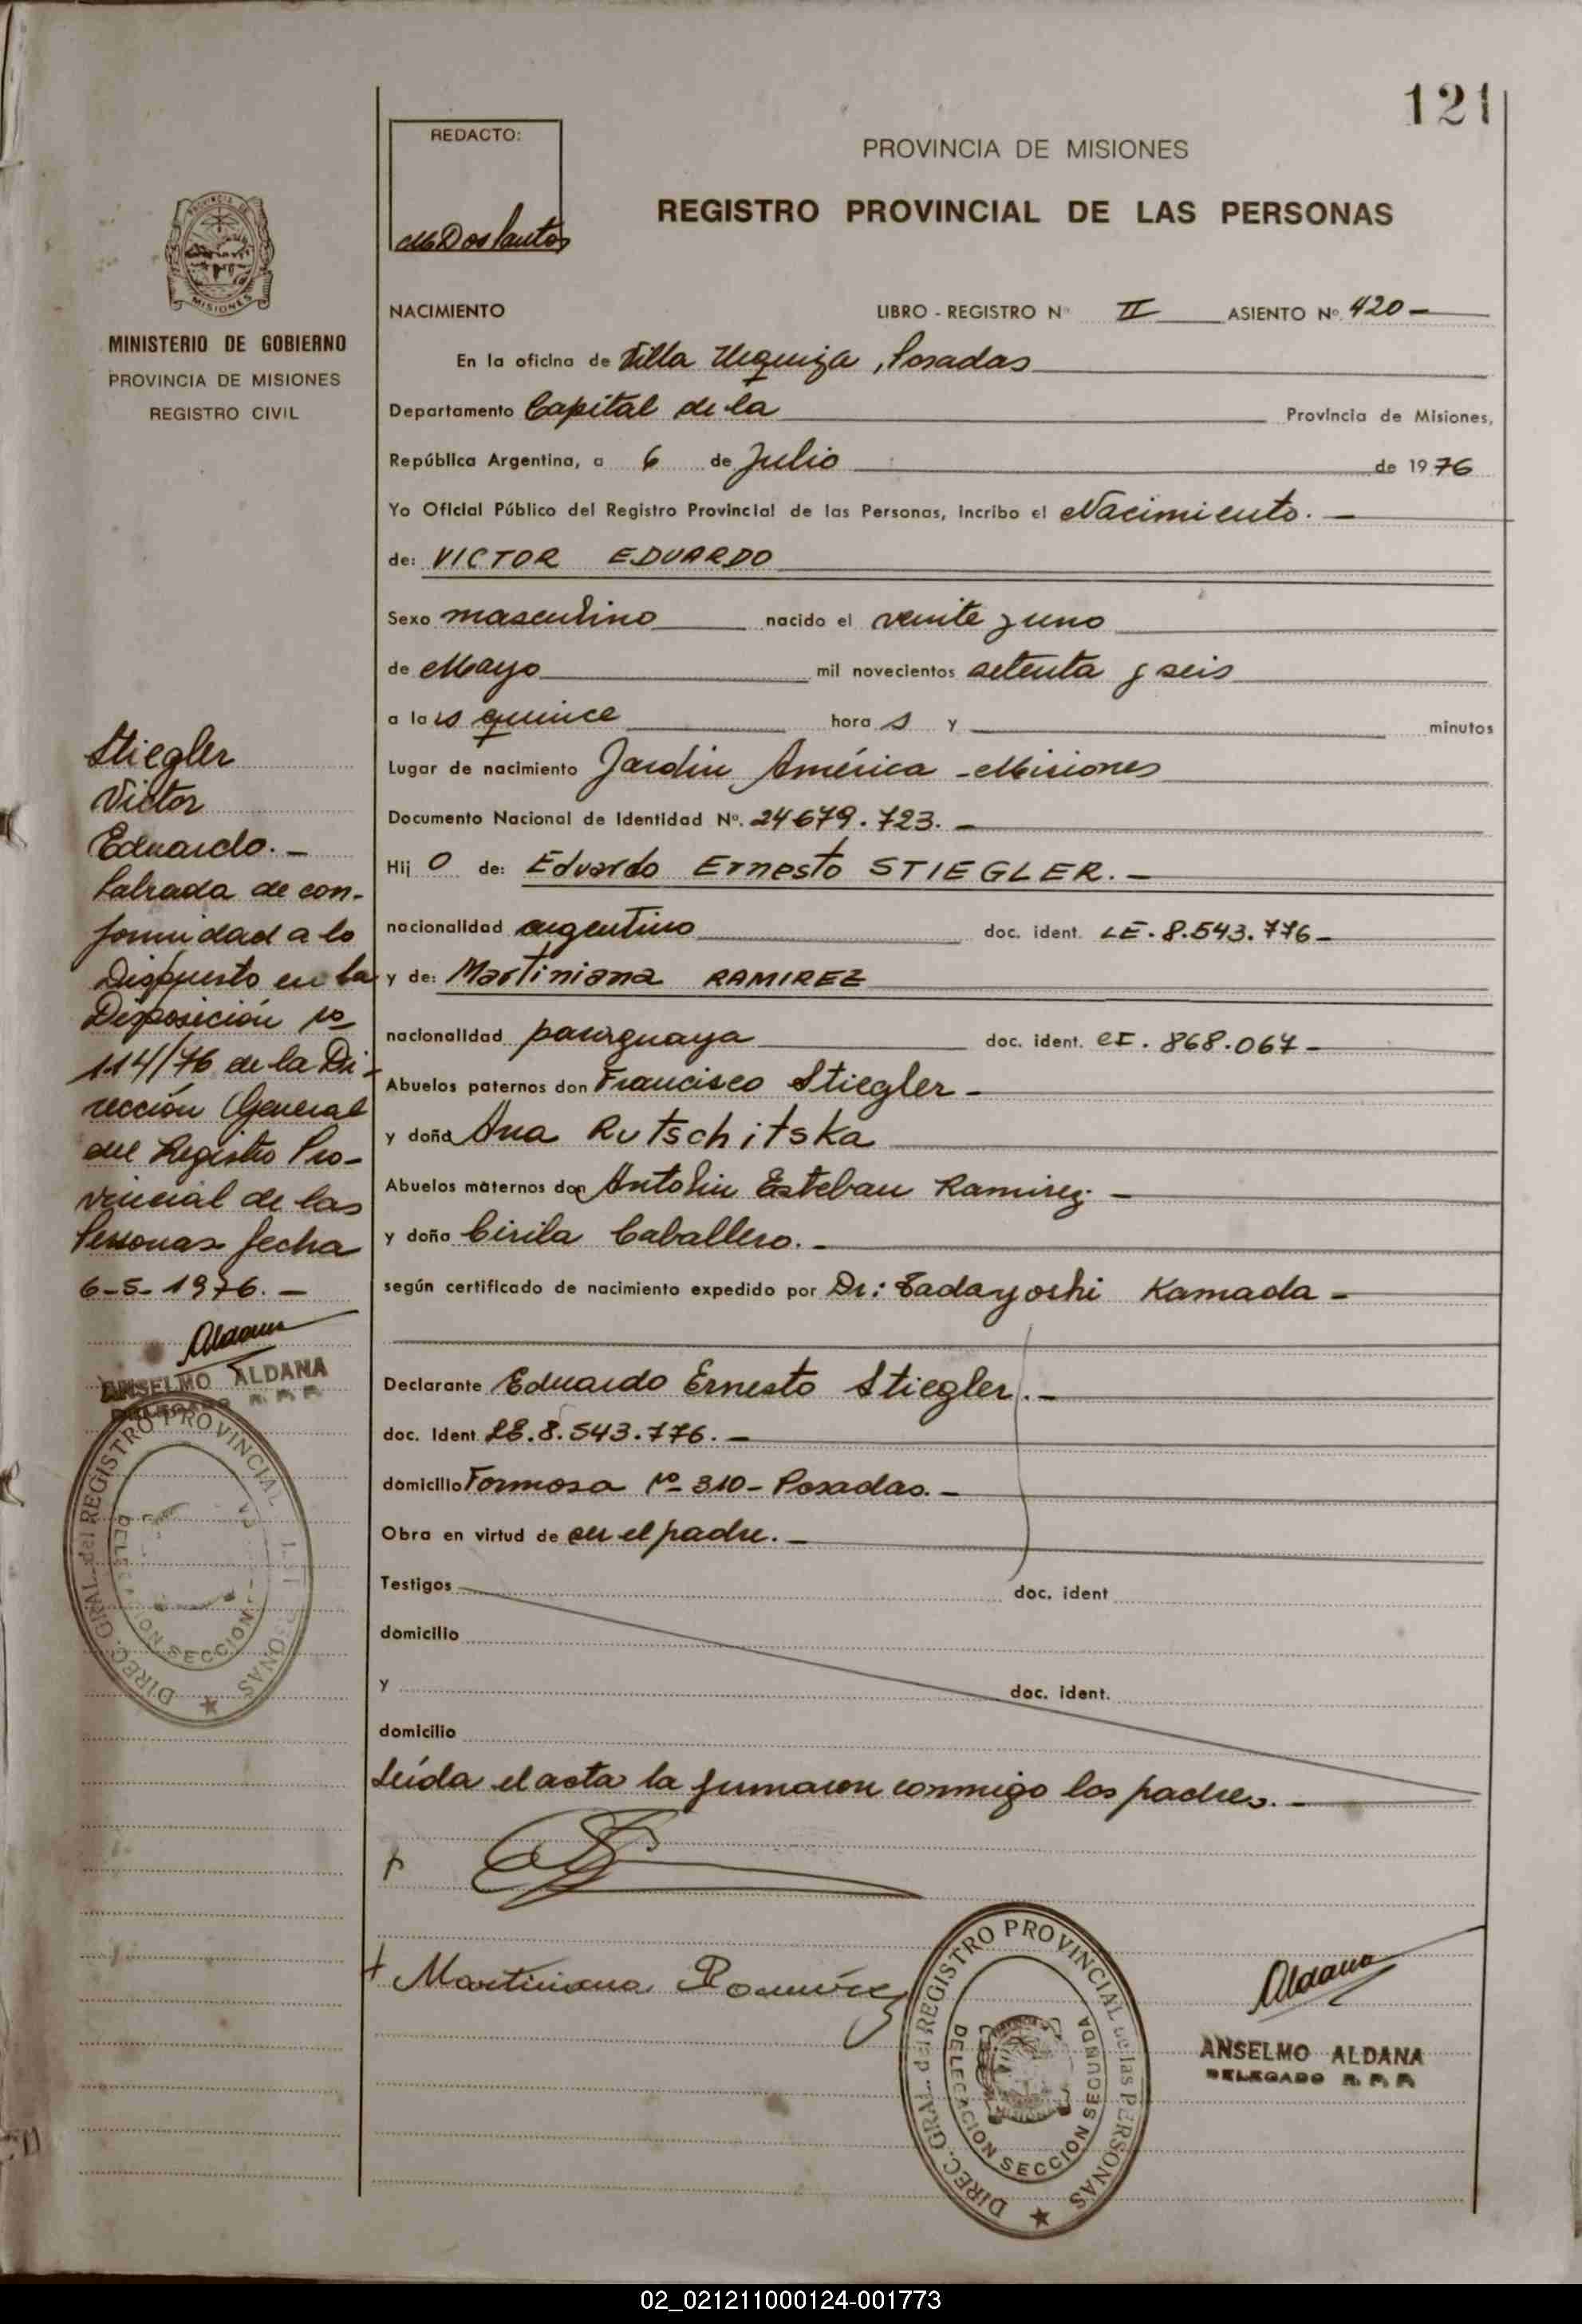 121
REDACTO:
M Dos Santos
PROVINCIA DE MISIONES
REGISTRO PROVINCIAL DE LAS PERSONAS
PROVINCIA DE
MISIONES
MINISTERIO DE GOBIERNO
PROVINCIA DE MISIONES
REGISTRO CIVIL
NACIMIENTO LIBRO - REGISTRO Nº II ASIENTO Nº 420 -
En la oficina de Villa Urquiza, Posadas
Departamento Capital de la Provincia de Misiones,
República Argentina, a 6 de Julio de 1976
Yo Oficial Público del Registro Provincial de las Personas, incribo el Nacimiento. -
de: VICTOR EDUARDO
Sexo masculino nacido el veinte y uno
de Mayo mil novecientos setenta y seis
a las quince horas y minutos
Lugar de nacimiento Jardin América - Misiones
Documento Nacional de Identidad Nº. 24679.723. -
Hijo de: Eduardo Ernesto STIEGLER. -
nacionalidad argentino doc. ident. LE. 8.543.776 -
y de: Martiniana RAMIREZ
nacionalidad paraguaya doc. ident. CI. 868.067 -
Abuelos paternos don Francisco Stiegler -
y doña Ana Rutschitska
Abuelos maternos don Antolin Esteban Ramirez. -
y doña Cirila Caballero. -
según certificado de nacimiento expedido por Dr: Tadayoshi Kamada -
Declarante Eduardo Ernesto Stiegler. -
doc. Ident. LE. 8.543.776. -
domicilio Formosa Nº 310 - Posadas. -
Obra en virtud de ser el padre. -
Testigos doc. ident
domicilio
y doc. ident.
domicilio
Leída el acta la firmaron conmigo los padres. -
Stiegler
Victor
Eduardo. -
Labrada de con-
formidad a lo
Dispuesto en la
Disposición Nº
114/76 de la Di-
rección General
del Registro Pro-
vincial de las
Personas fecha
6-5-1976. -
Aldana
ANSELMO ALDANA
DELEGADO R. P. P.
DIREC. GRAL. del REGISTRO PROVINCIAL PERSONAS
DELE SECCION
+ Martiniana Ramírez
DIREC. GRAL. del REGISTRO PROVINCIAL de las PERSONAS
DELEGACION SECCION SEGUNDA
Aldana
ANSELMO ALDANA
DELEGADO R. P. P.
02_021211000124-001773